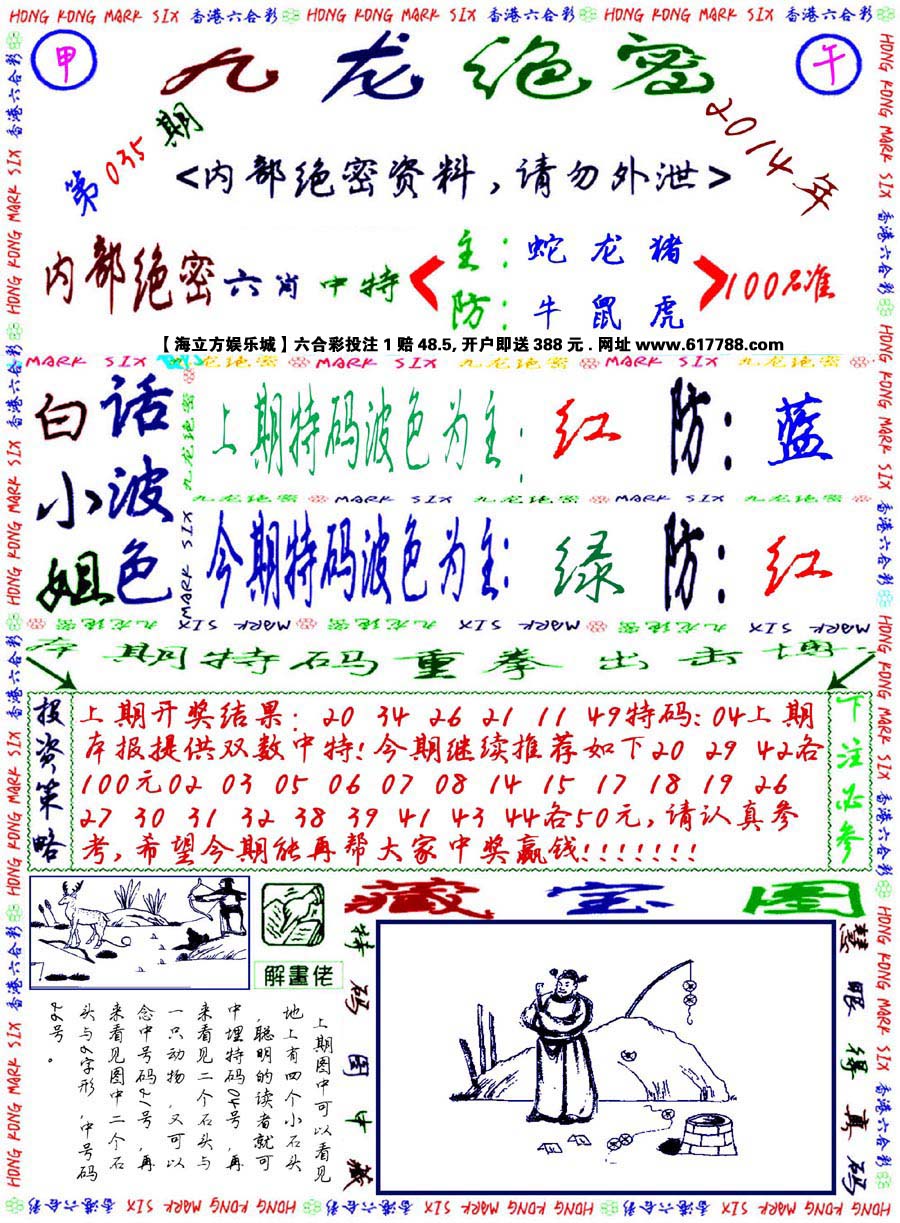 HONG KONG MARK SIX 香港六合彩 HONG KONG MARK SIX 香港六合彩 HONG KONG MARK SIX 香港六合彩
甲
九龙绝密
午
第035期
2014年
<内部绝密资料,请勿外泄>
内部绝密六肖中特
主:蛇龙猪
防:牛鼠虎
100%准
【海立方娱乐城】六合彩投注1赔48.5,开户即送388元.网址www.617788.com
MARK SIX 九龙绝密 MARK SIX 九龙绝密 MARK SIX 九龙绝密
白话
小波
姐色
上期特码波色为主:红 防:蓝
九龙绝密 MARK SIX 九龙绝密 MARK SIX 九龙绝密
今期特码波色为主:绿 防:红
MARK SIX 九龙绝密 MARK SIX 九龙绝密 MARK SIX 九龙绝密
本期特码重拳出击博
投资策略
上期开奖结果:20 34 26 21 11 49特码:04上期
本报提供双数中特!今期继续推荐如下20 29 42各
100元02 03 05 06 07 08 14 15 17 18 19 26
27 30 31 32 38 39 41 43 44各50元,请认真参
考,希望今期能再帮大家中奖赢钱!!!!!!!
下注必参
解畫佬
藏宝图
特码图中藏
慧眼得真码
上期图中可以看见
地上有四个小石头
,聪明的读者就可
中埋特码04号,再
来看见二个石头与
一只动物,又可以
念中号码21号,再
来看见图中二个石
头与
字形,中号码
HONG KONG MARK SIX 香港六合彩 HONG KONG MARK SIX 香港六合彩 HONG KONG MARK SIX 香港六合彩